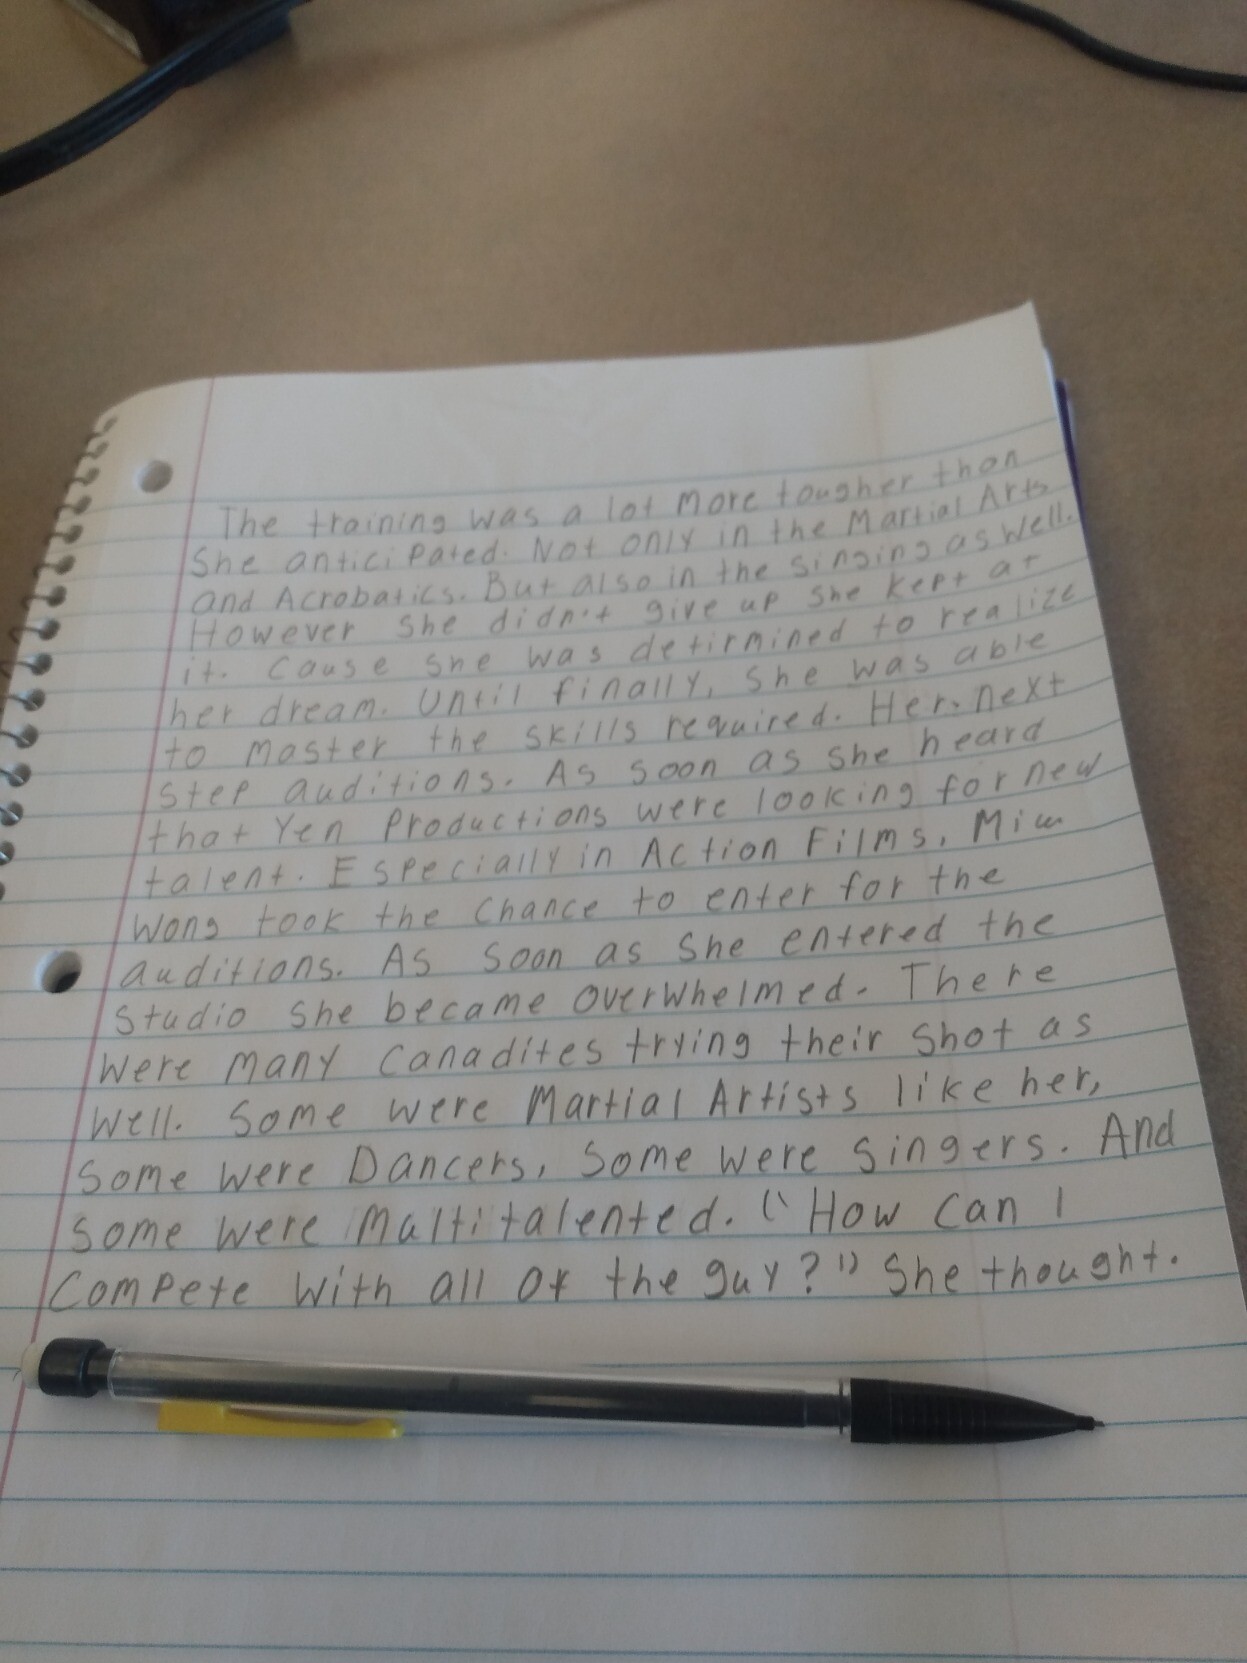 The training was a lot more tougher than
She anticipated. Not only in the Martial Arts
and Acrobatics. But also in the singing as well.
However she didn't give up she kept at
it. Cause she was detirmined to realize
her dream. Until finally, she was able
to master the skills required. Her next
step auditions. As soon as she heard
that Yen Productions were looking for new
talent. Especially in Action Films,
Wong took the chance to enter for the
auditions. As soon as she entered the
studio she became overwhelmed. There
were many canadites trying their shot as
well. Some were Martial Artists like her,
some were Dancers, some were singers. And
some were Multitalented. "How can I
compete with all of the guy?" She thought.